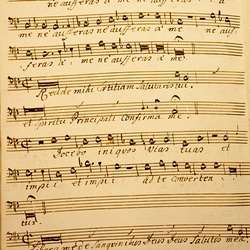 ne auferas à me ne auferas à
me ne auferas à me ne auf:
feras à me ne auferas à me.
Redde mihi lætitiam Salutaris tui,
et Spiritu Principali Confirma me.
Docebo iniquos Vias tuas et
impii et impii ad te Conver ten
tur.
Libera me de Sanguinibus Deus Deus Salutis meæ